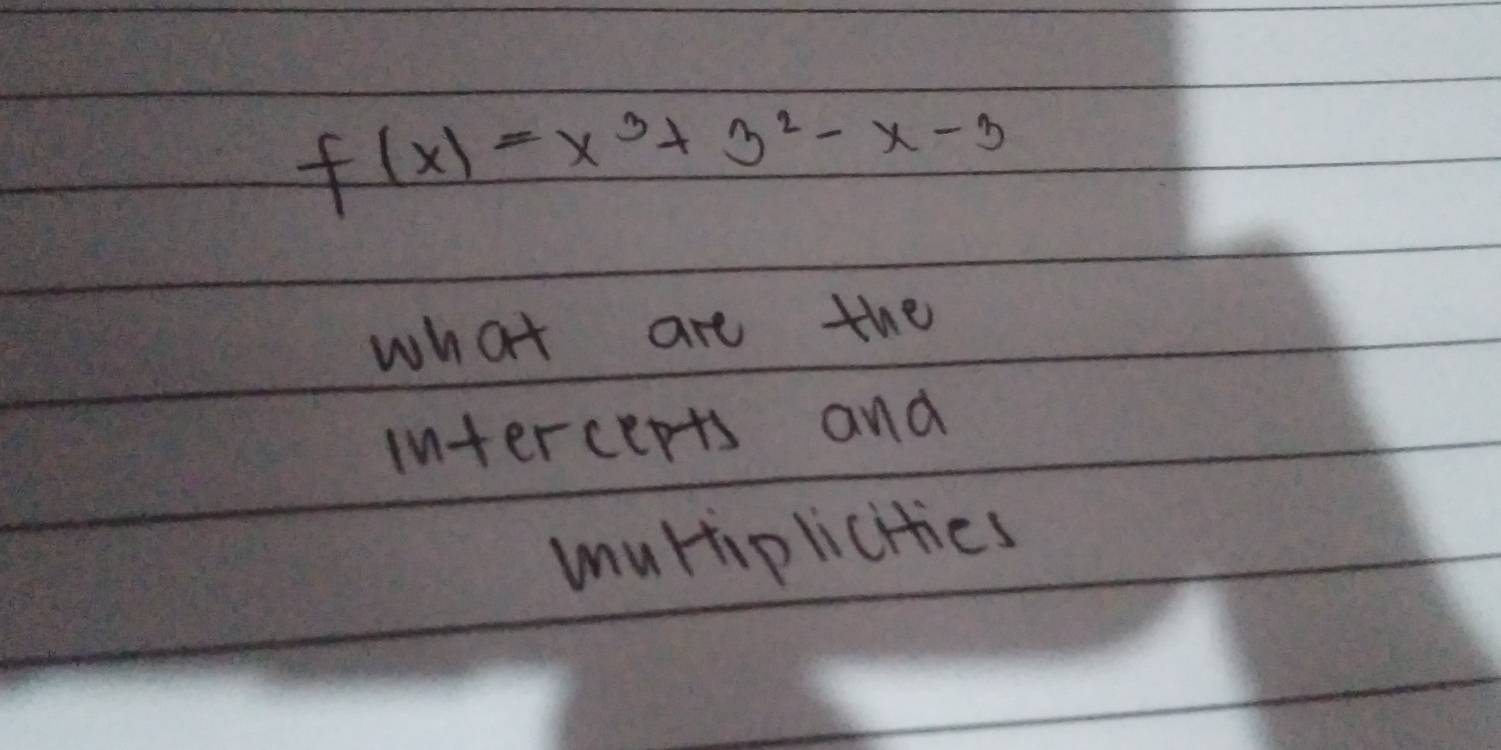 f(x) = x³ + 3² - x - 3
what are the
intercepts and
multiplicities